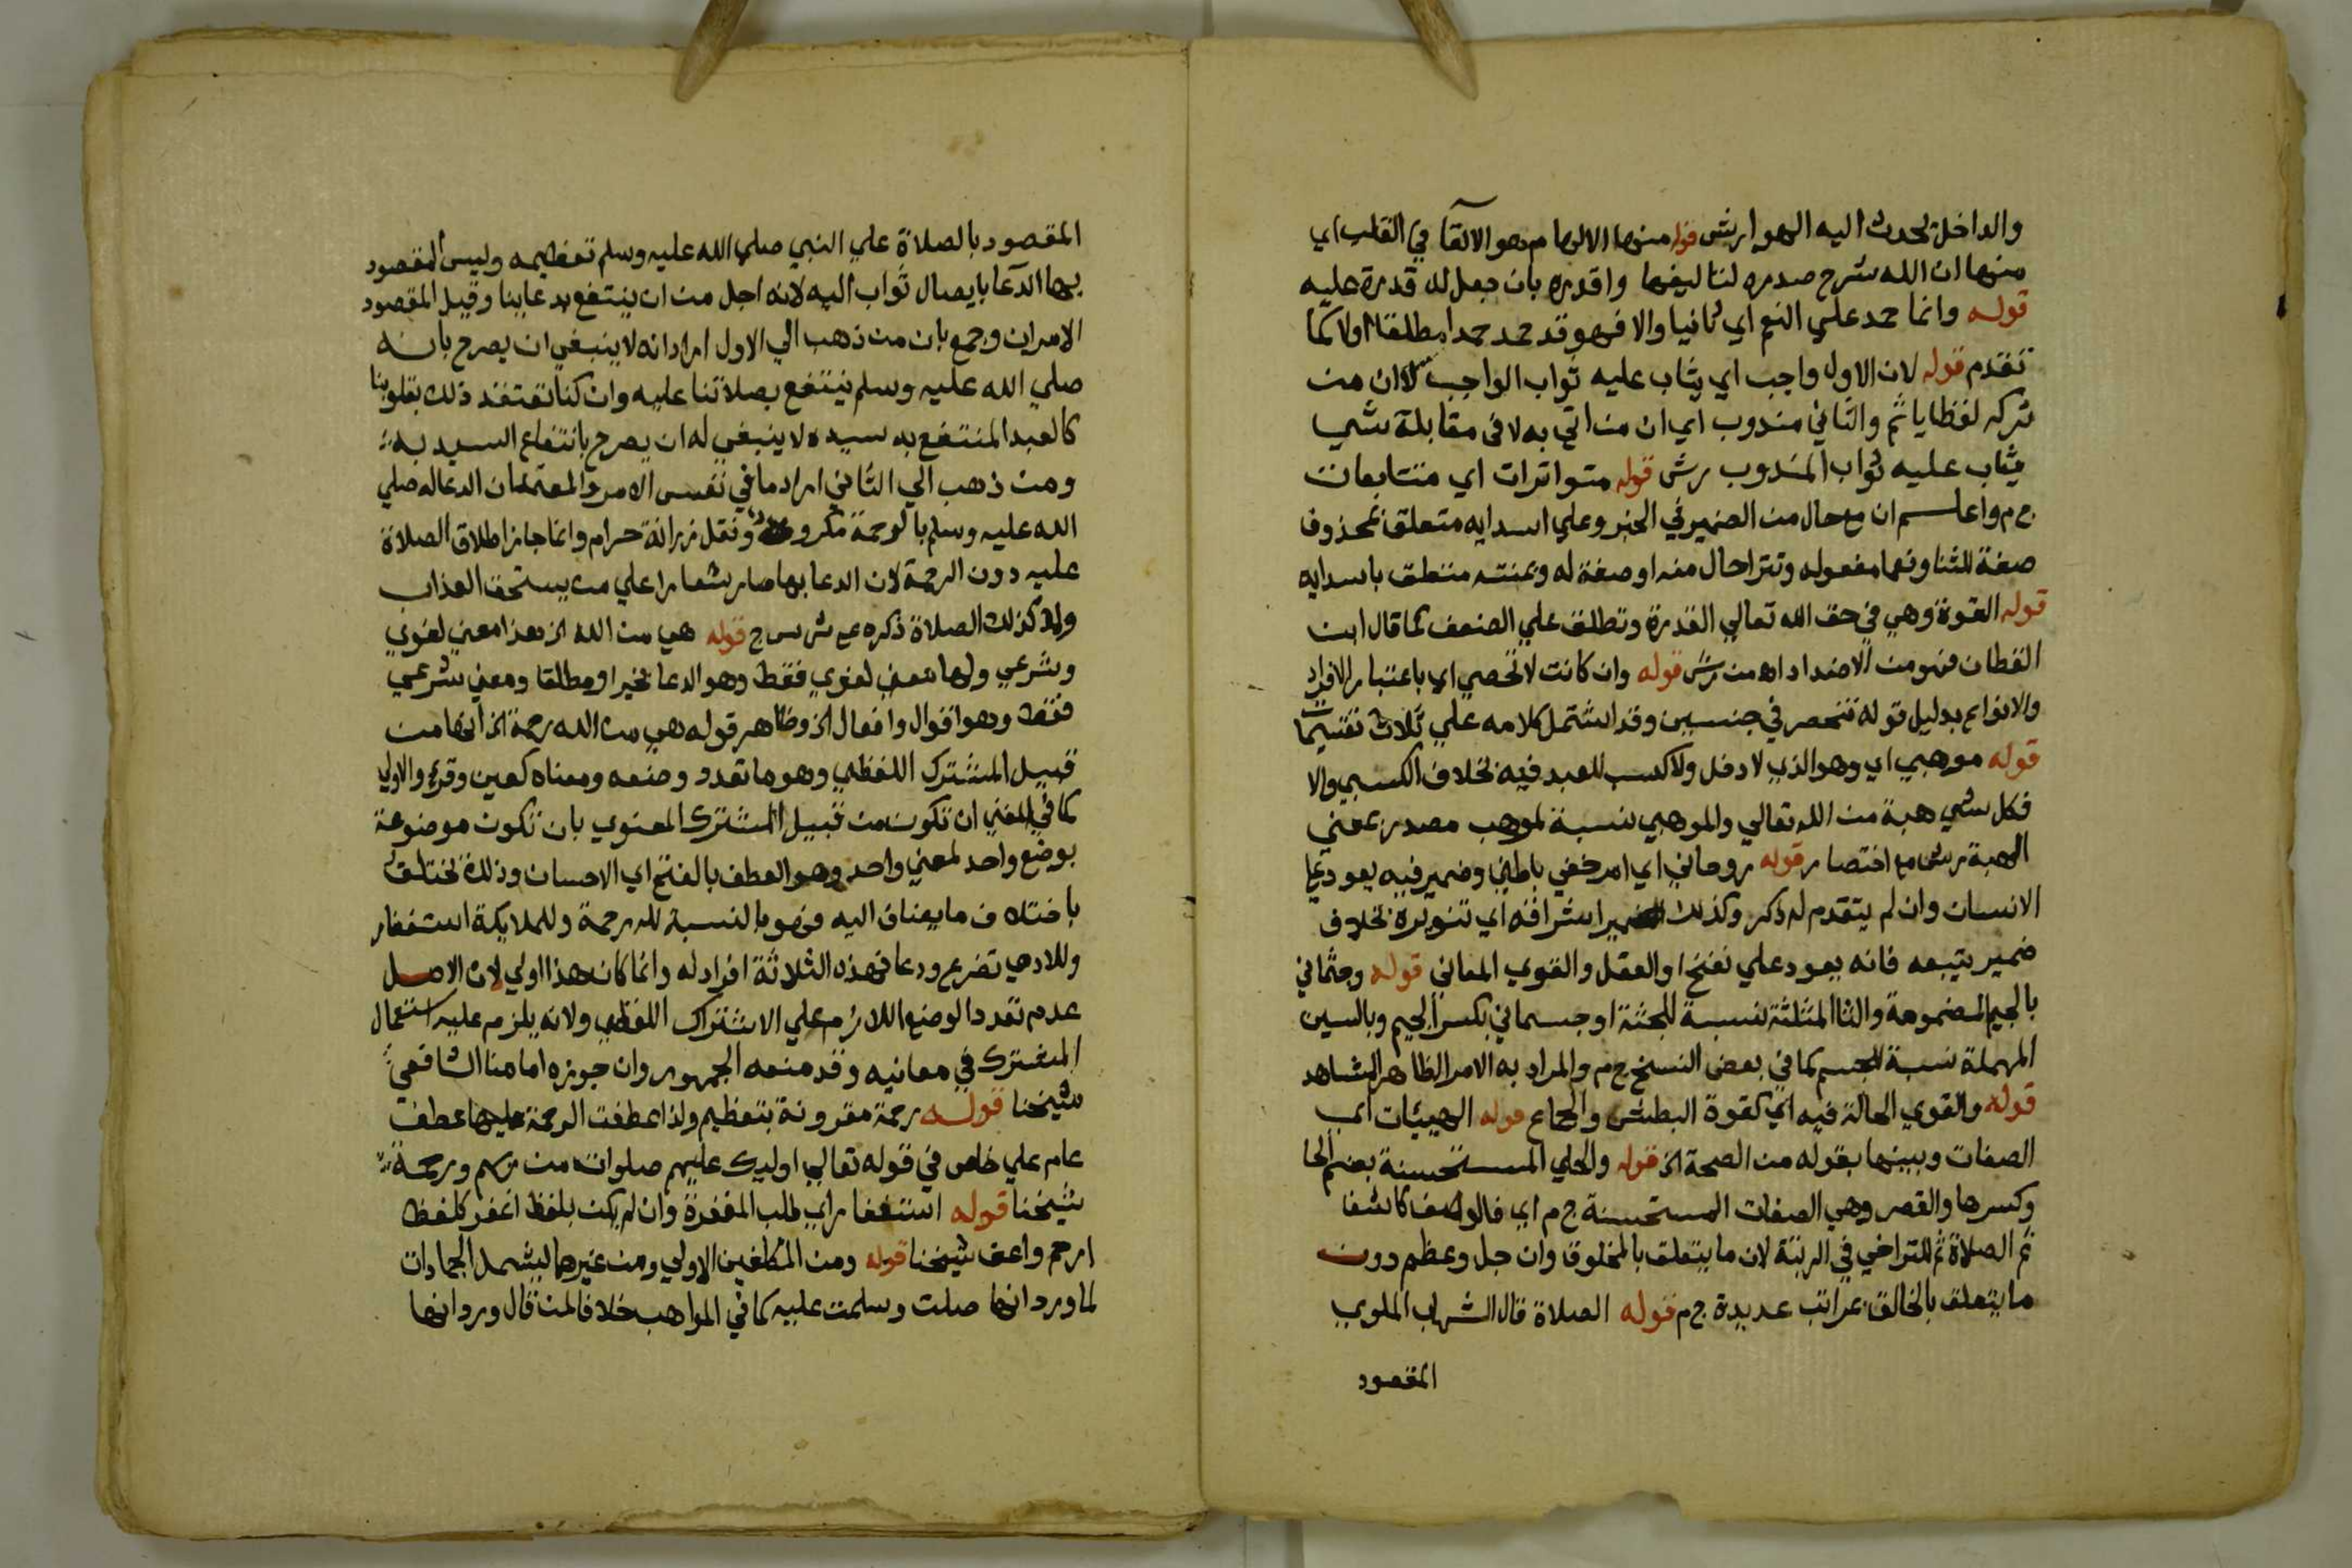 والداخل يحدث اليه الهوا رش قوله منها الالهام وهو الالقآ في القلب اي
منها ان الله شرح صدره لنا ليفهما واقدره بان جعل له قدرة عليه
قوله وانما حمد علي النعم اي ثانيا والا فهو قد حمد حمدا مطلقا اولا كما
تقدم قوله لان الاول واجب اي يثاب عليه ثواب الواجب لا ان من
تركه لفظا ياثم والثاني مندوب اي ان من اتي به لا في مقابلة شي
يثاب عليه ثواب المندوب رش قوله متواترات اي متتابعات
ج م واعلم ان مع حال من الضمير في الخبر وعلي اسدايه متعلق بمحذوف
صفة للثنا ونعما مفعوله وتترا حال منه او صفة له وبمنته متعلق باسدايه
قوله القوة وهي في حق الله تعالي القدرة وتطلق علي الضعف كما قال ابن
القطان فهو من الاضداد اه من رش قوله وان كانت لا تحصي اي باعتبار الافراد
والانواع بدليل قوله تنحصر في جنسين وقد اشتمل كلامه علي ثلاث تقسيمات
قوله موهبي اي وهو الذي لا دخل ولا كسب للعبد فيه بخلاف الكسبي والا
فكل شي هبة من الله تعالي والموهبي نسبة لموهب مصدر بمعني
الهبة رش مع اختصار قوله روحاني اي امر خفي باطني وضمير فيه يعود علي
الانسان وان لم يتقدم له ذكر وكذلك ضمير اشراقه اي تنويره بخلاف
ضمير يتبعه فانه يعود علي نفخ او العقل والقوي المعاني قوله وجثماني
بالجيم المضمومة والثا المثلثة نسبة للجثة او جسماني بكسر الجيم وبالسين
المهملة نسبة للجسم كما في بعض النسخ ج م والمراد به الامر الظاهر المشاهد
قوله والقوي الحالة فيه اي كقوة البطش والجماع قوله الهيئات اي
الصفات وبينها بقوله من الصحة الخ قوله والحلي المستحسنة بضم الحا
وكسرها والقصر وهي الصفات المستحسنة ج م اي فالوصف كاشف
ثم الصلاة ثم للتراخي في الرتبة لان ما يتعلق بالمخلوق وان جل وعظم دون
ما يتعلق بالخالق بمراتب عديدة ج م قوله الصلاة قال الشهاب الملوي
المقصود
المقصود بالصلاة علي النبي صلي الله عليه وسلم تعظيمه وليس المقصود
بها الدعا بايصال ثواب اليه لانه اجل من ان ينتفع بدعاينا وقيل المقصود
الامران وجمع بان من ذهب الي الاول اراد انه لا ينبغي ان يصرح بانه
صلي الله عليه وسلم ينتفع بصلاتنا عليه وان كنا نعتقد ذلك بقلوبنا
كالعبد المنتفع به سيده لا ينبغي له ان يصرح بانتفاع السيد به
ومن ذهب الي الثاني اراد ما في نفس الامر والمعتمد ان الدعا له صلي
الله عليه وسلم بالرحمة مكروه ونقل زرانه حرام وانما جاز اطلاق الصلاة
عليه دون الرحمة لان الدعا بها صار شعارا علي من يستحق العذاب
ولا كذلك الصلاة ذكره ع ش س ج قوله هي من الله الخ هذا معني لغوي
وشرعي ولها معني لغوي فقط وهو الدعا بخير او مطلقا ومعني شرعي
فقط وهو اقوال وافعال الخ وظاهر قوله هي من الله رحمة الخ انها من
قبيل المشترك اللفظي وهو ما تعدد وضعه ومعناه كعين وقرء والاولي
كما في المغني ان تكون من قبيل المشترك المعنوي بان تكون موضوعة
بوضع واحد لمعني واحد وهو العطف بالفتح اي الاحسان وذلك يختلف
باختلاف ما يضاف اليه فهو بالنسبة لله رحمة وللملايكة استغفار
وللادمي تضرع ودعا فهذه الثلاثة افراد له وانما كان هذا اولي لان الاصل
عدم تعدد الوضع اللازم علي الاشتراك اللفظي ولانه يلزم عليه استعمال
المشترك في معانيه وقد منعه الجمهور وان جوزه امامنا الشافعي
شيخنا قوله رحمة مقرونة بتعظيم ولذا عطفت الرحمة عليها عطف
عام علي خاص في قوله تعالي اوليك عليهم صلوات من ربهم ورحمة
شيخنا قوله استغفار اي طلب المغفرة وان لم يكن بلفظ اغفر كلفظ
ارحم واعف شيخنا قوله ومن المكلفين الاولي ومن غيرهما ليشمل الجمادات
لما ورد انها صلت وسلمت عليه كما في المواهب خلافا لمن قال ورد انها